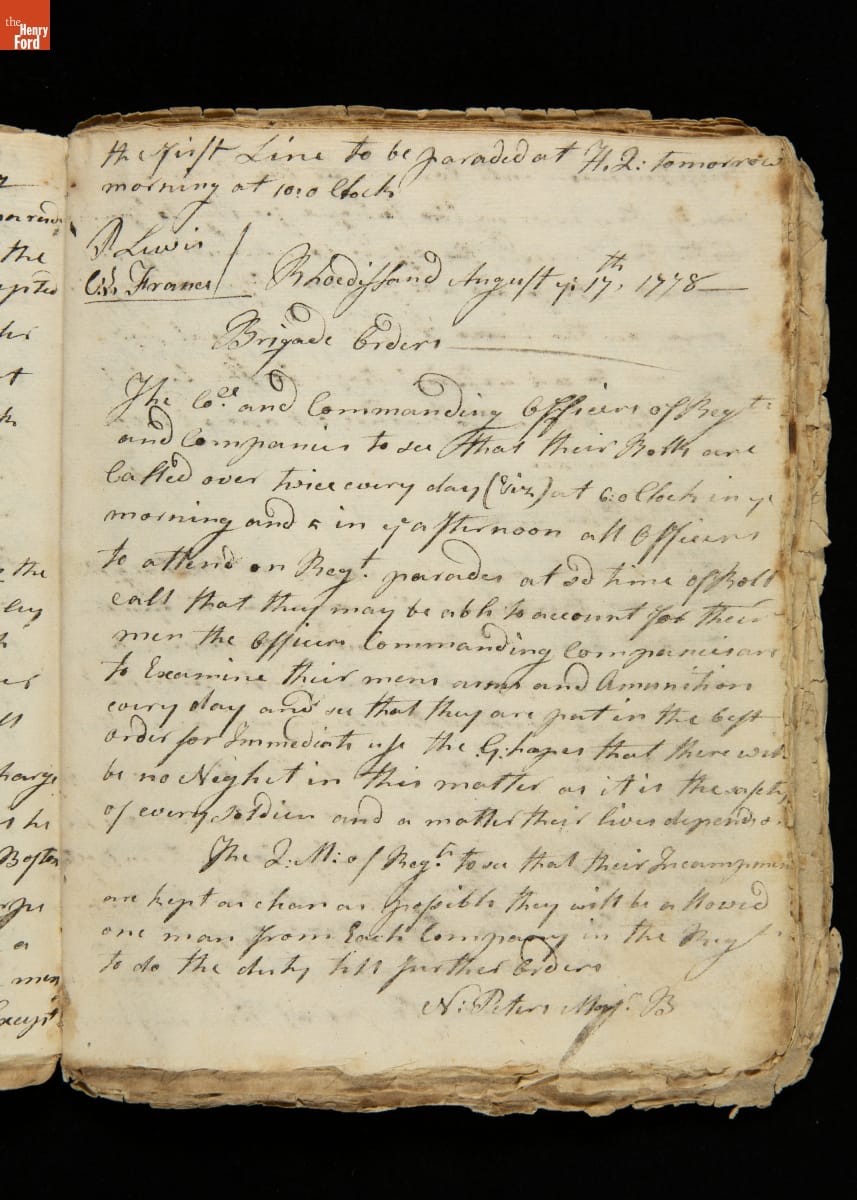 the Henry Ford
the First Line to be paraded at H. Q: tomorrow
morning at 10:o Clock
P Lewis
C:S: France
Rhoedisland August ye: 17th, 1778
Brigade Orders
The Cols and Commanding Officers of Regts
and Companies to see that their Rolls are
Called over twice every day (Viz) at 6:o Clock in ye
morning and 5 in ye afternoon all Officers
to attend on Regt. parades at sd time of Roll
call that they may be able to account for their
men the Officers Commanding Companies are
to Examine their mens arms and Amunition
every day and see that they are put in the best
order for Immediate use the G: hopes that there will
be no Neglet in this matter as it is the safety
of every soldier and a matter their lives depends o
The Q: M: of Regts to see that their Incampmen
are kept as clean as possible they will be allowed
one man from Each Company in the Regt
to do the duty till further Orders
N: Peters Majr. B
the
Boston
a
men
Except